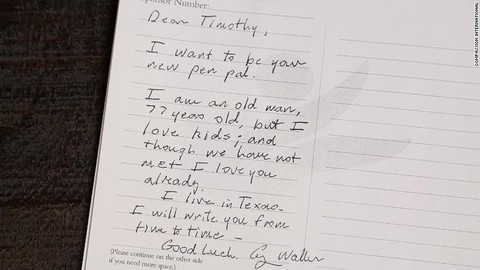 Sponsor Number:
Dear Timothy,
I want to be your
new pen pal.
I am an old man,
77 years old, but I
love kids; and
though we have not
met I love you
already.
I live in Texas -
I will write you from
time to time -
Good luck. G. Walker
(Please continue on the other side
if you need more space.)
COMPASSION INTERNATIONAL